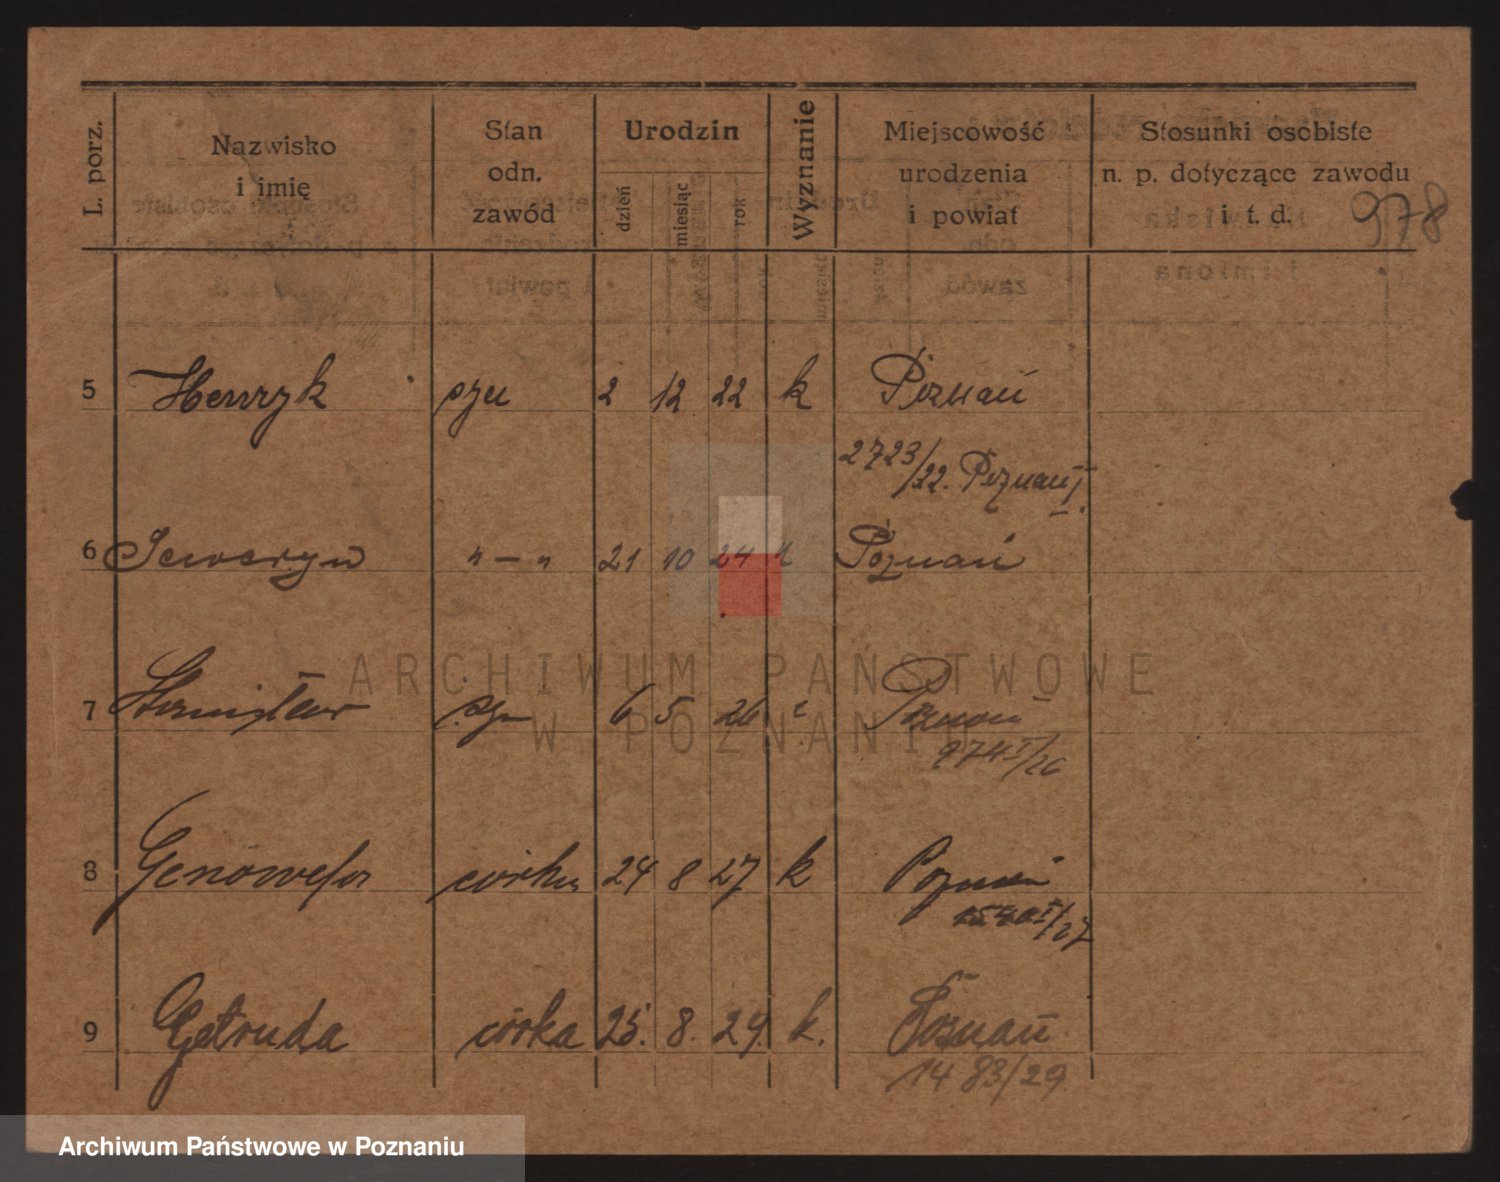 L. porz.
Nazwisko i imię
Stan odn. zawód
Urodzin
dzień miesiąc rok
Wyznanie
Miejscowość urodzenia i powiat
Stosunki osobiste n. p. dotyczące zawodu i t. d.
978
5 Henryk syn 2 12 22 k Poznań
2723/22. Poznań I.
6 Seweryn " — " 21 10 24 " Poznań
ARCHIWUM PAŃSTWOWE
7 Stanisław syn 6 5 26 Poznań
W POZNANIU
974 I/26
8 Genowefa córka 24 8 27 k Poznań
I/27
9 Getruda córka 25. 8. 29. k. Poznań
1483/29
Archiwum Państwowe w Poznaniu